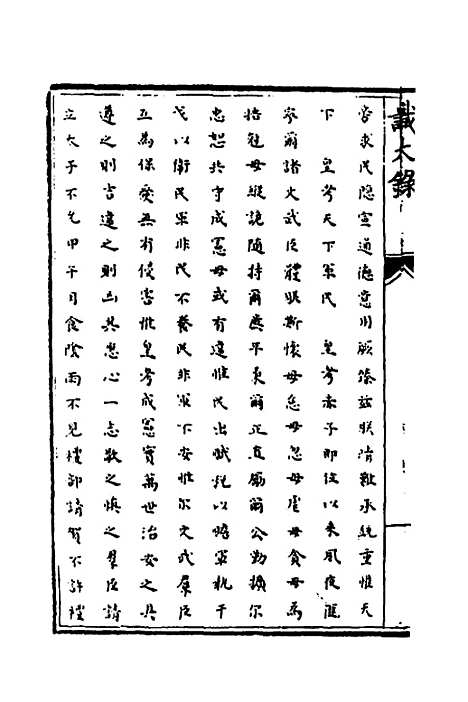 識大錄
旁求民隱宣道德意用厥臻茲朕隋𮥼承統重惟天
下　皇考天下軍民　皇考赤子即位以來夙夜匪
寧爾諸文武臣體朕斯懷毋怠毋忽毋虐毋貪毋為
怙冒毋縱詭隨持爾廉平秉爾正直勵爾公勤擴爾
忠恕共守成憲毋或有違惟民出賦稅以餉軍執干
戈以衛民軍非民不養民非軍不安惟爾文武群臣
互為保愛無有侵害惟皇考成憲實萬世治安之具
遵之則吉違之則凶其悉心一志敬之慎之群臣請
立太子不允甲午日食陰雨不見禮部請賀不許禮